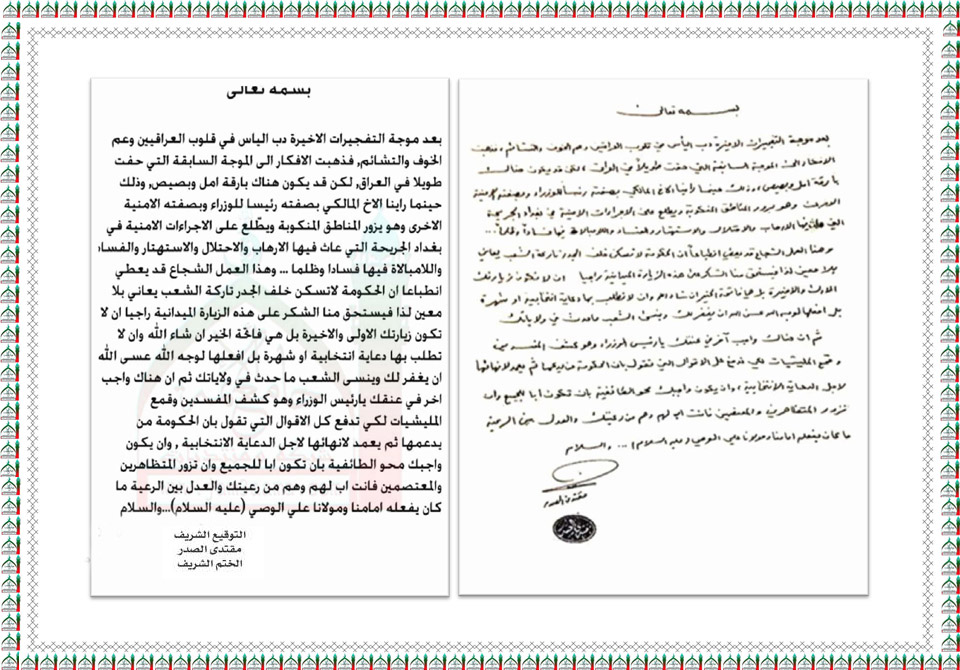 بسمه تعالى
بعد موجة التفجيرات الاخيرة دب اليأس في قلوب العراقيين وعم الخوف والتشائم , فذهبت
الافكار الى الموجة السابقة التي حفت طويلاً في العراق , لكن قد يكون هناك
بارقة امل وبصيص , وذلك حينما راينا الاخ المالكي بصفته رئيساً للوزراء وبصفته الامنية
الاخرى وهو يزور المناطق المنكوبة ويطلع على الاجراءات الامنية في بغداد الجريحة
التي عاث فيها الارهاب والاحتلال والاستهتار والفساد واللامبالاة فيها فساداً وظلماً ...
وهذا العمل الشجاع قد يعطي انطباعاً ان الحكومة لاتسكن خلف الجدر تاركة الشعب يعاني
بلا معين لذا فيستحق منا الشكر على هذه الزيارة الميدانية راجيا ان لا تكون زيارتك
الاولى والاخيرة بل هي فاتحة الخير ان شاء الله وان لا تطلب بها دعاية انتخابية او شهرة
بل افعلها لوجه الله عسى الله ان يغفر لك وينسى الشعب ماحدث في ولاياتك
ثم ان هناك واجب آخر في عنقك يارئيس الوزراء وهو كشف المفسدين
وقمع المليشيات لكي تدفع كل الاقوال التي تقول بان الحكومة من يدعمها ثم يعمد لانهائها
لاجل الدعاية الانتخابية , وان يكون واجبك محو الطائفية بان تكون ابا للجميع وان
تزور المتظاهرين والمعتصمين فانت اب لهم وهم من رعيتك والعدل بين الرعية
ما كان يفعله امامنا ومولانا علي الوصي (عليه السلام) ... والسلام
مقتدى الصدر
بسمه تعالى
بعد موجة التفجيرات الاخيرة دب الياس في قلوب العراقيين وعم
الخوف والتشائم, فذهبت الافكار الى الموجة السابقة التي حفت
طويلا في العراق, لكن قد يكون هناك بارقة امل وبصيص, وذلك
حينما راينا الاخ المالكي بصفته رئيسا للوزراء وبصفته الامنية
الاخرى وهو يزور المناطق المنكوبة ويطّلع على الاجراءات الامنية في
بغداد الجريحة التي عاث فيها الارهاب والاحتلال والاستهتار والفساد
واللامبالاة فيها فسادا وظلما ... وهذا العمل الشجاع قد يعطي
انطباعا ان الحكومة لاتسكن خلف الجدر تاركة الشعب يعاني بلا
معين لذا فيستحق منا الشكر على هذه الزيارة الميدانية راجيا ان لا
تكون زيارتك الاولى والاخيرة بل هي فاتحة الخير ان شاء الله وان لا
تطلب بها دعاية انتخابية او شهرة بل افعلها لوجه الله عسى الله
ان يغفر لك وينسى الشعب ما حدث في ولاياتك ثم ان هناك واجب
اخر في عنقك يارئيس الوزراء وهو كشف المفسدين وقمع
المليشيات لكي تدفع كل الاقوال التي تقول بان الحكومة من
يدعمها ثم يعمد لانهائها لاجل الدعاية الانتخابية , وان يكون
واجبك محو الطائفية بان تكون ابا للجميع وان تزور المتظاهرين
والمعتصمين فانت اب لهم وهم من رعيتك والعدل بين الرعية ما
كان يفعله امامنا ومولانا علي الوصي (عليه السلام)...والسلام
التوقيع الشريف
مقتدى الصدر
الختم الشريف